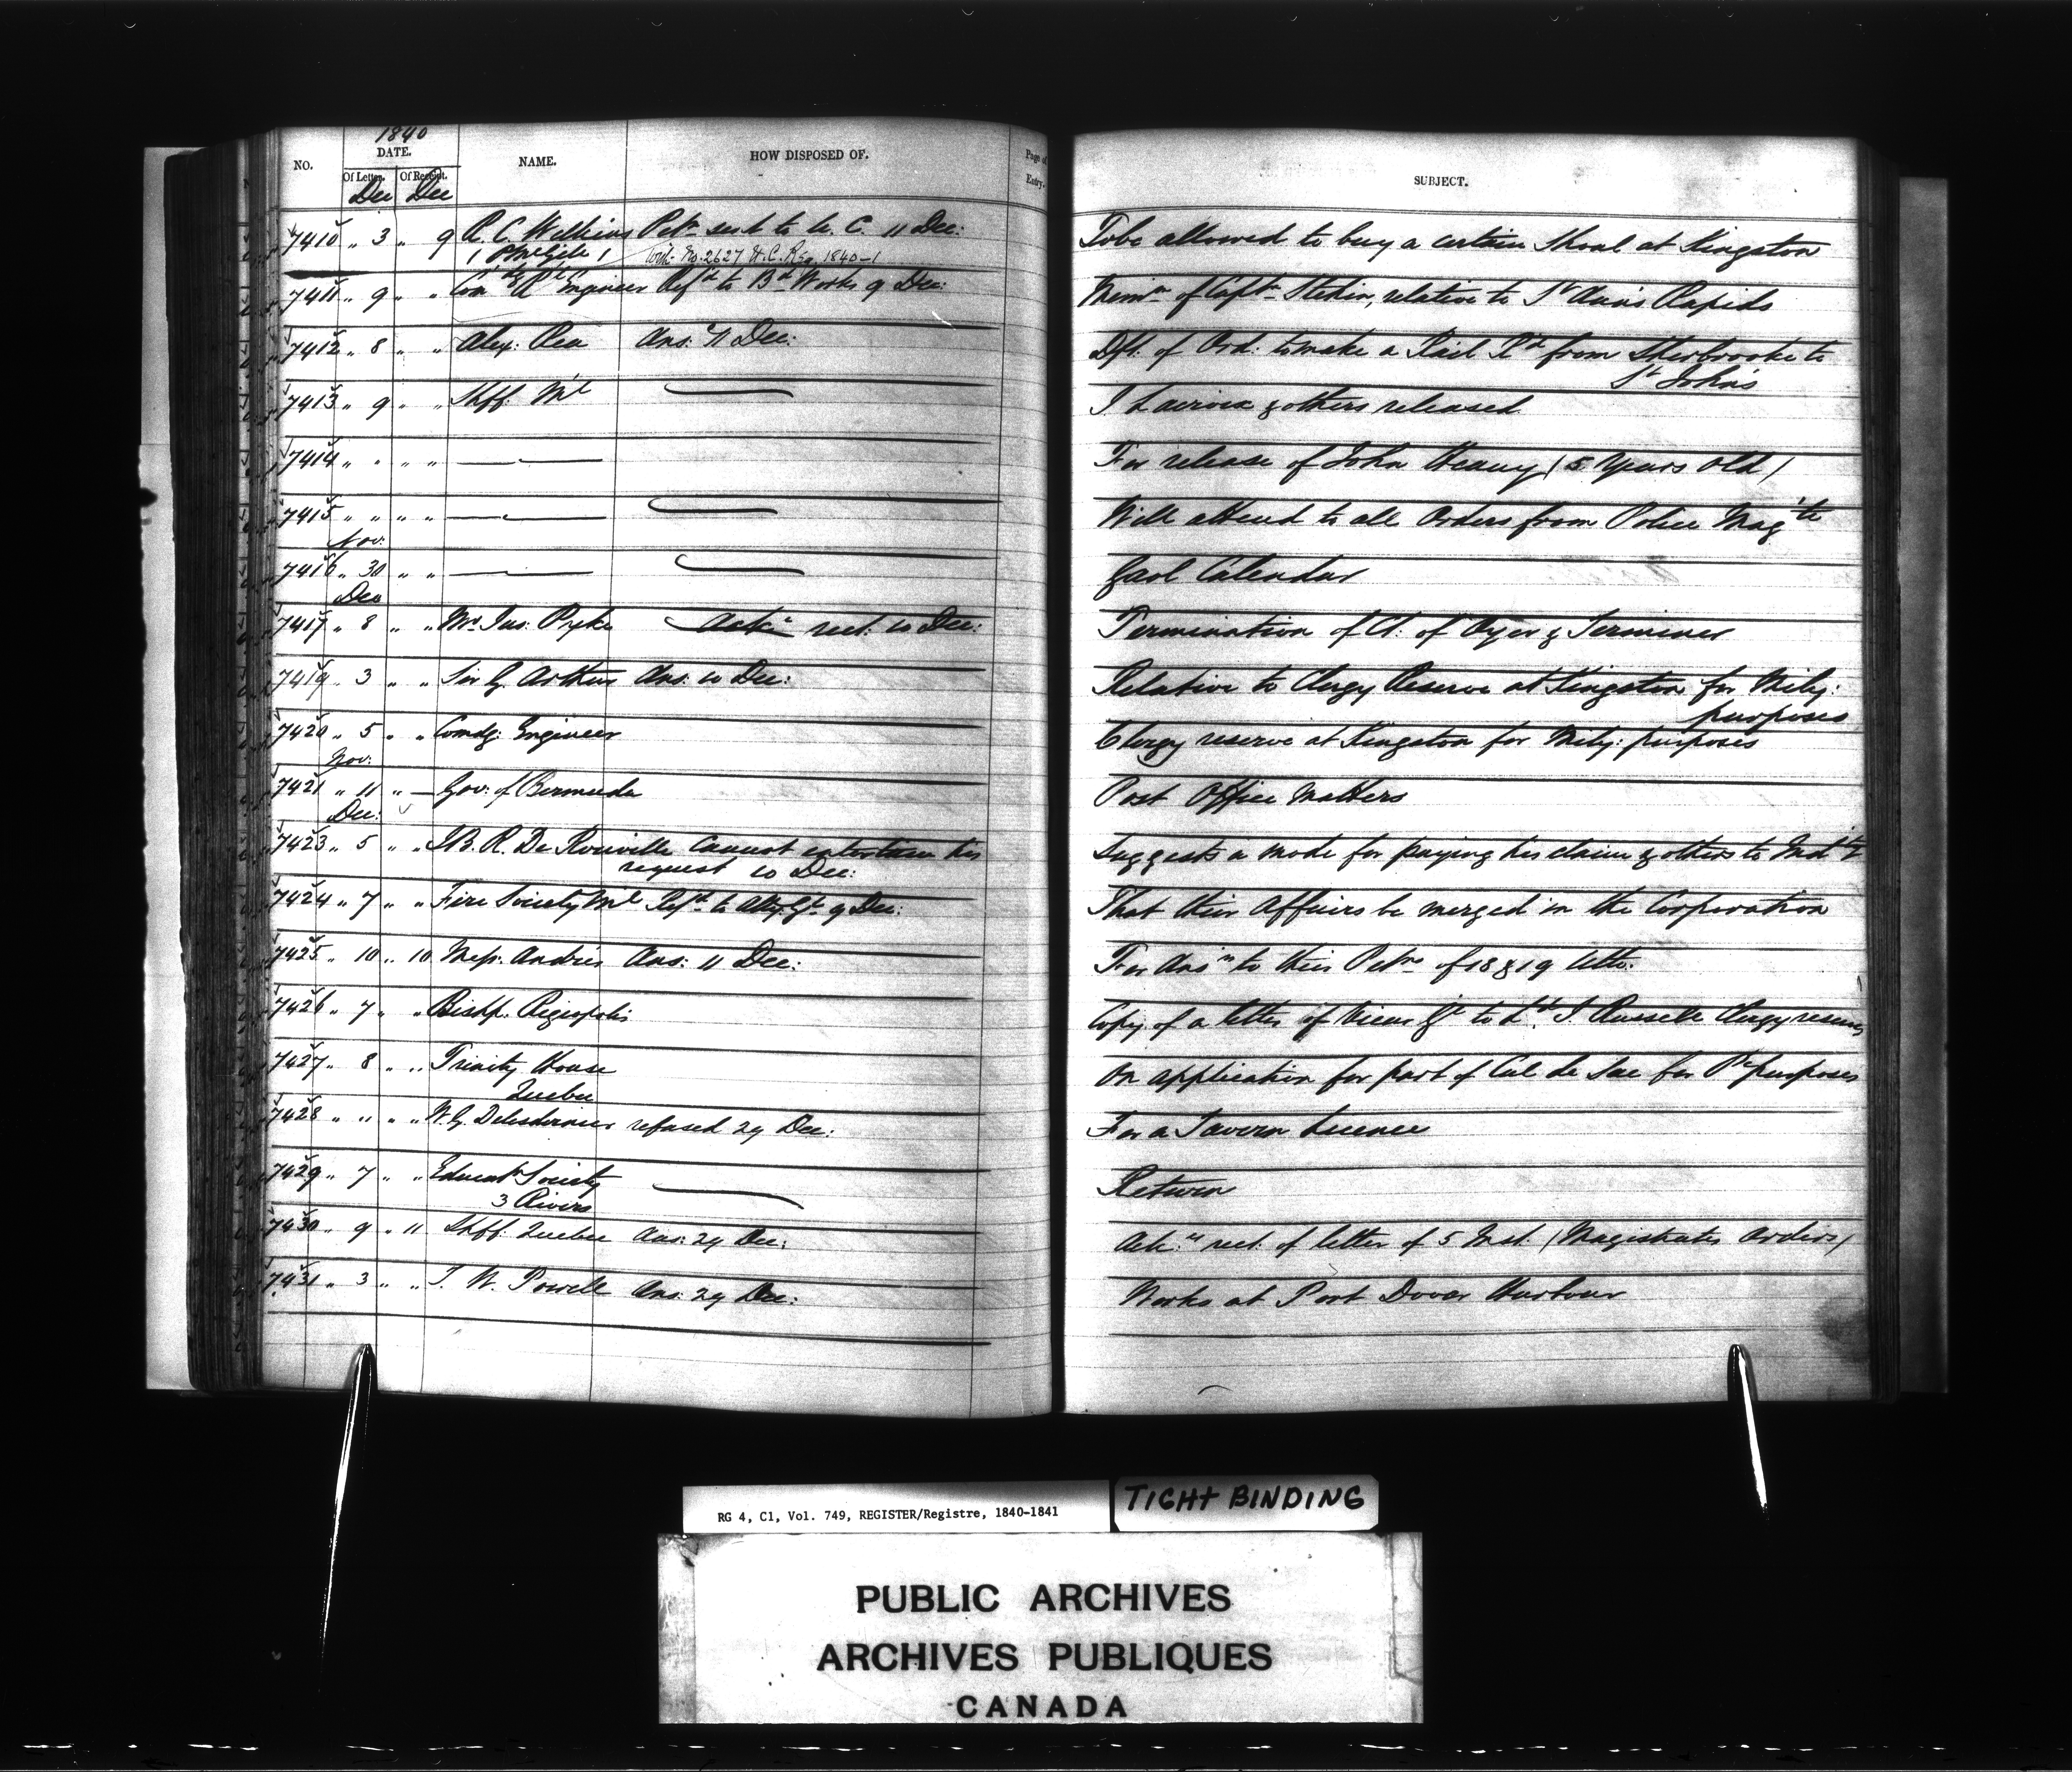 1840
NO. DATE. NAME. HOW DISPOSED OF. Page of Entry. SUBJECT.
Of Letter. Of Receipt.
Dec Dec
7410 " 3 " 9 R. C. Wilkins Petn sent to U. C. 11 Dec: To be allowed to buy a certain Shoal at Kingston
No. 2627 U. C. Reg. 1840-1
7411 " 9 " " Comdg Rl Engineer Refd to Bd Works 9 Dec: Memn of Captn relative to St Ann's Rapids
7412 " 8 " " Alex: Rea Ans: 11 Dec: Dft. of Ord: to make a Rail Rd from Sherbrooke to
St John's
7413 " 9 " " Shff. Ml — I Lacroix & others released
7414 " " " " — For release of John Heavy (5 Years Old)
7415 " " " " — — Will attend to all Orders from Police Magte
Nov:
7416 " 30 " " — — Gaol Calendar
Dec
7417 " 8 " " Mr Jus: Pyke Ack: rect: 10 Dec: Termination of Ct: of Oyer & Terminer
7419 " 3 " " Sir G. Arthur Ans: 10 Dec: Relative to Clergy Reserve at Kingston for Mily:
purposes
7420 " 5 " " Comdg: Engineer Clergy reserve at Kingston for Mily: purposes
Nov:
7421 " 11 " — Gov: of Bermuda Post Office Matters
Dec:
7423 " 5 " " J.B. R. De Rouville Cannot entertain his Suggests a mode for paying his claim & others to
request 10 Dec:
7424 " 7 " " Fire Society Ml Refd to Atty Gl 9 Dec: That their Affairs be merged in the Corporation
7425 " 10 " 10 Messr. Andres Ans: 11 Dec: For Ansr to their Petns of 18 & 19
7426 " 7 " " Bishp. Regiopolis Copy of a letter of Vicar Gl to Ld J. Russell Clergy reserves
7427 " 8 " " Trinity House On application for part of Cul de Sac for Pc purposes
Quebec
7428 " " " " W. G. Delesdernier refused 29 Dec: For a Tavern Licence
7429 " 7 " " Educatn Society — Return
3 Rivers
7430 " 9 " 11 Shff. Quebec Ans: 29 Dec: Ack:g rect: of letter of 5 Inst. (Magistrates Orders)
7431 " 3 " " I. W. Powell Ans: 29 Dec: Works at Port Dover Harbour
RG 4, C1, Vol. 749, REGISTER/Registre, 1840-1841
TIGHT BINDING
PUBLIC ARCHIVES
ARCHIVES PUBLIQUES
CANADA